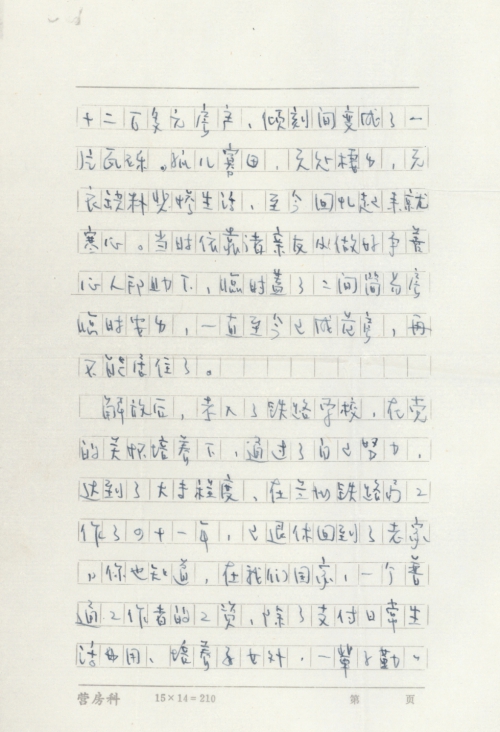 十二万多元房产，倾刻间变成了一
片瓦砾。孤儿寡田，无处棲身，无
衣缺料悲惨生活，至今回忆起来就
寒心。当时依靠诸亲友以做好争善
心人邦助下，临时蓋了二间简易房
临时安身，一直至今已成危房，再
不能居住了。
解放后，考入了铁路学校，在党
的关怀培养下，通过了自己努力，
达到了大专程度，在兰州铁路局工
作了四十一年，已退休回到了老家
你也知道，在我们国家，一个普
通工作者的工资，除了支付日常生
活费用、培养子女外，一辈子勤
营房科 15×14=210 第 页